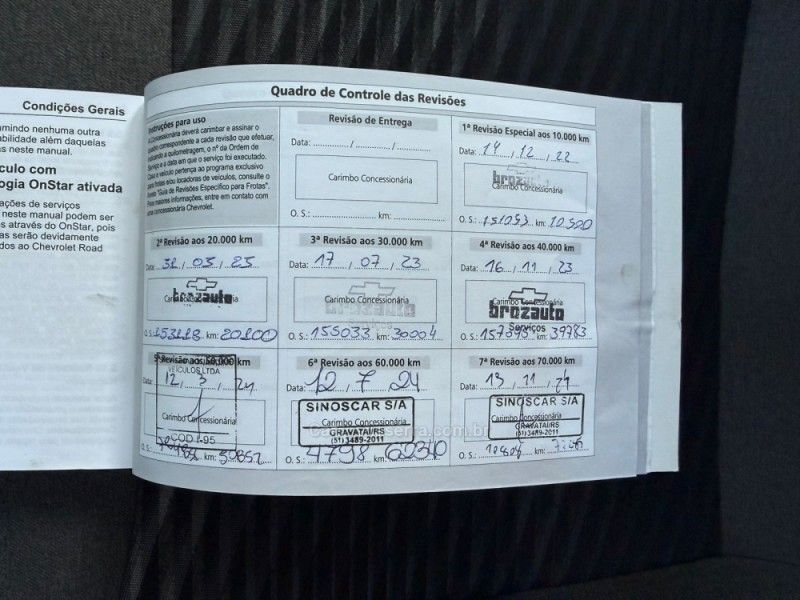 Condições Gerais
mindo nenhuma outra
abilidade além daquelas
s neste manual.
culo com
logia OnStar ativada
ações de serviços
neste manual podem ser
os através do OnStar, pois
as serão devidamente
dos ao Chevrolet Road
Quadro de Controle das Revisões
Instruções para uso
Concessionária deverá carimbar e assinar o
correspondente a cada revisão que efetuar,
indicando a quilometragem, o nº de Ordem de
Serviço e a data em que o serviço foi executado.
veículo pertença ao programa exclusivo
para frotas e/ou locadoras de veículos, consulte o
"Guia de Revisões Específico para Frotas".
maiores informações, entre em contato com
concessionária Chevrolet.
Revisão de Entrega
Data: / /
Carimbo Concessionária
O. S.: km:
1ª Revisão Especial aos 10.000 km
Data: 14, 12, 22
brozauto
Carimbo Concessionária
O. S.: 151053 km: 10500
2ª Revisão aos 20.000 km
Data: 31, 03, 23
brozauto
O. S.: 153118 km: 20100
3ª Revisão aos 30.000 km
Data: 17, 07, 23
Carimbo Concessionária
O. S.: 155033 km: 30004
4ª Revisão aos 40.000 km
Data: 16, 11, 23
Carimbo Concessionária
brozauto
Serviços
O. S.: km: 39783
5ª Revisão aos 50.000 km
VEICULOS LTDA
12, 3, 24
Carimbo Concessionária
COD 1-95
km: 50852
6ª Revisão aos 60.000 km
12, 7, 24
SINOSCAR S/A
Carimbo Concessionária
GRAVATAI/RS
(51) 3489-2011
O. S.: 4798 km: 60340
7ª Revisão aos 70.000 km
Data: 13, 11, 24
SINOSCAR S/A
Carimbo Concessionária
GRAVATAI/RS
(51) 3489-2011
O. S.: km:
serra.com.br